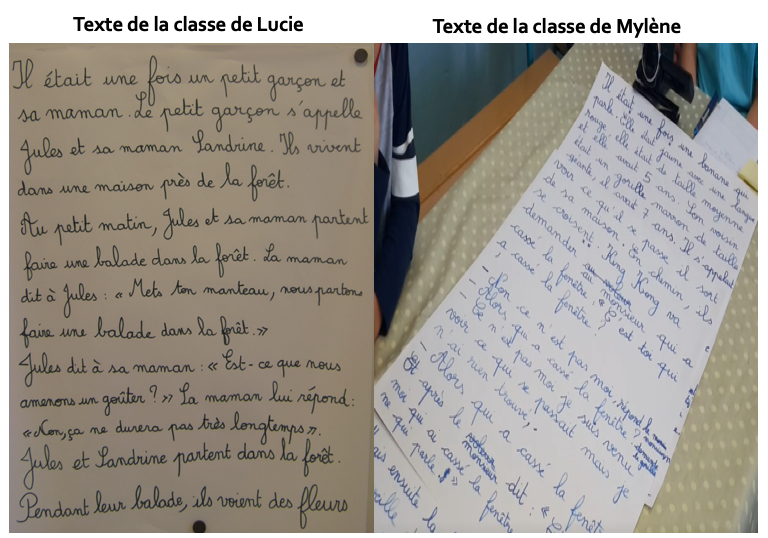 Texte de la classe de Lucie
Il était une fois un petit garçon et
sa maman. Le petit garçon s'appelle
Jules et sa maman Sandrine. Ils vivent
dans une maison près de la forêt.
Au petit matin, Jules et sa maman partent
faire une balade dans la forêt. La maman
dit à Jules : « Mets ton manteau, nous partons
faire une balade dans la forêt. »
Jules dit à sa maman : « Est-ce que nous
amenons un goûter ? » La maman lui répond :
« Non, ça ne durera pas très longtemps ».
Jules et Sandrine partent dans la forêt.
Pendant leur balade, ils voient des fleurs
Texte de la classe de Mylène
Il était une fois une banane qui
parle. Elle était jaune avec une langue
rouge, elle était de taille moyenne
et elle avait 5 ans. Son voisin
était un gorille marron de taille
géante, il avait 7 ans. Il s'appelait
voir ce qu'il se passe, il sort
de sa maison. En chemin, ils
se croisent. King Kong va
demander au monsieur qui a
cassé la fenêtre : « C'est toi qui
a cassé la fenêtre ?
- Non ce n'est pas moi, répond le
- Alors, qui a cassé la fenêtre ?
- Ce n'est pas moi je suis venu
voir ce qui se passait mais je
n'ai rien trouvé.
- Alors qui a cassé la fenêtre
Et après le monsieur dit : «
moi qui a cassé la fenêtre
ne qui parle ! »
ensuite la